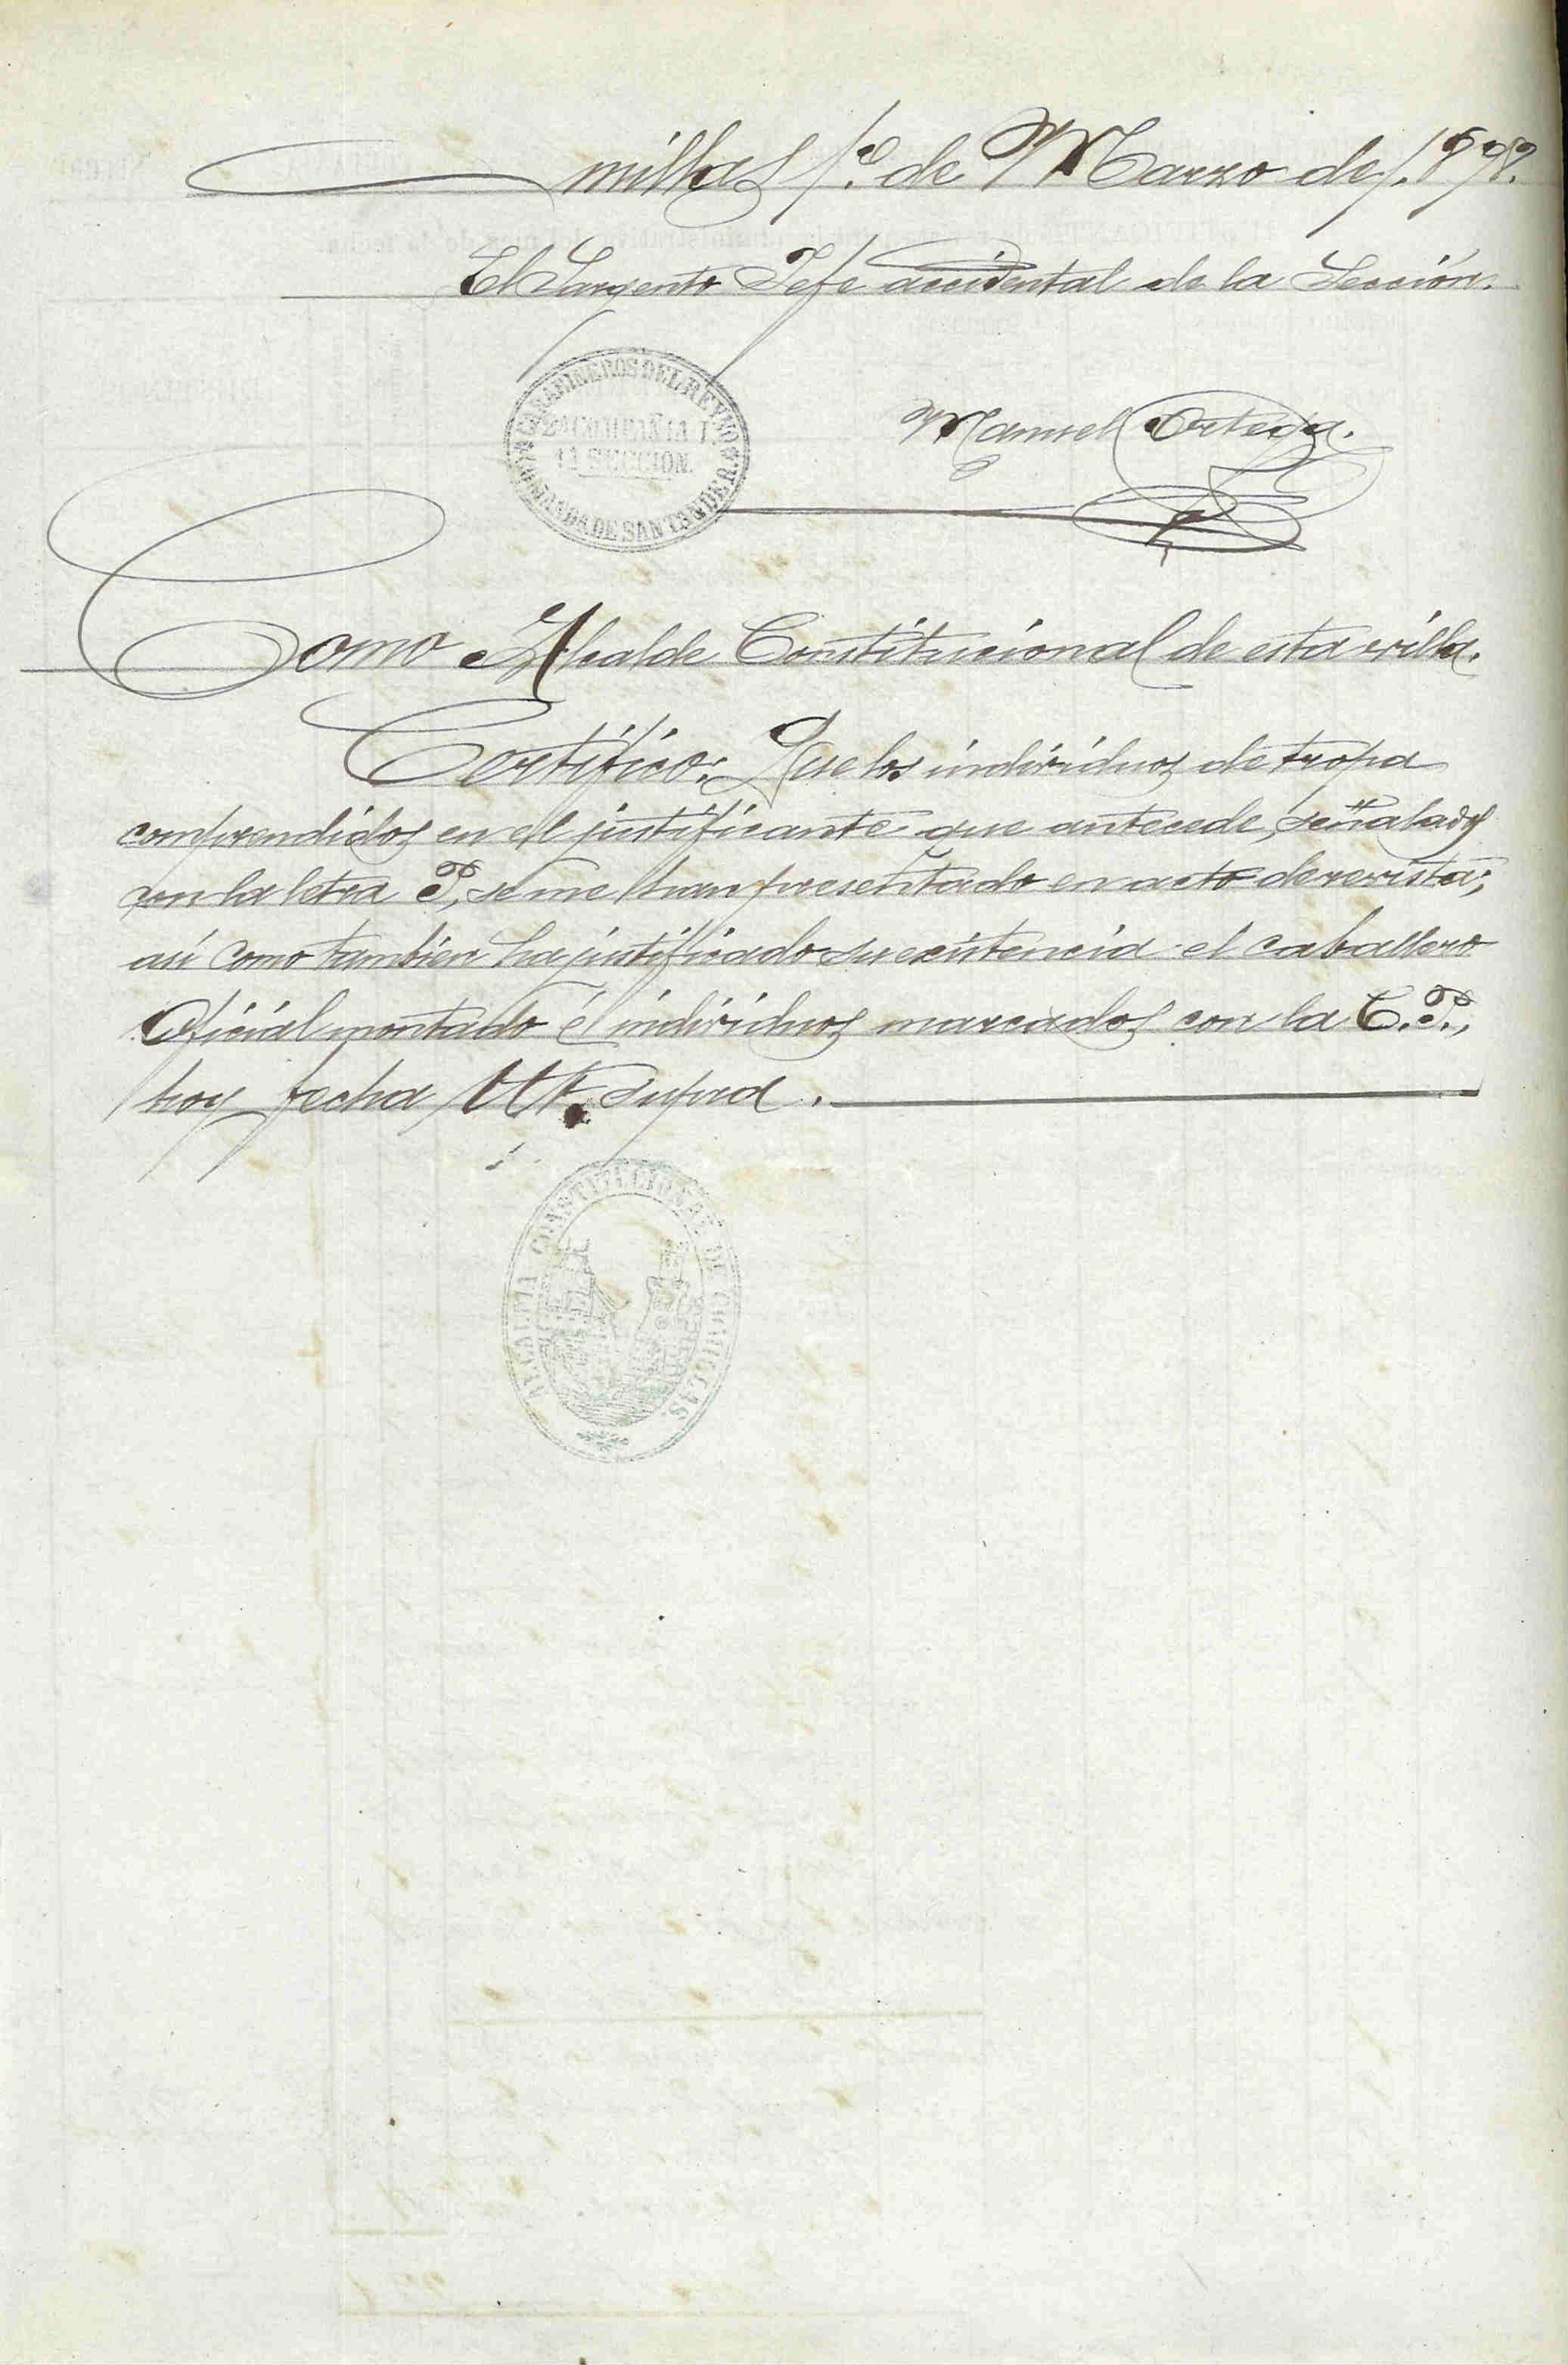 millas 1.º de Marzo de 1.898.
El Sargento Jefe accidental de la Sección.
CARABINEROS DEL REYNO
COMPAÑIA
1A SECCION.
DE SANTANDER
Manuel Ortega.
Como Alcalde Constitucional de esta villa.
Certifico: Que los individuos de tropa
comprendidos en el justificante que antecede, señalados
con la letra P, se me han presentado en acto de revista;
así como también ha justificado su existencia el caballero
Oficial montado é individuos marcados con la C.P.,
hoy fecha Ut. supra.
ALCALDIA CONSTITUCIONAL DE COMILLAS